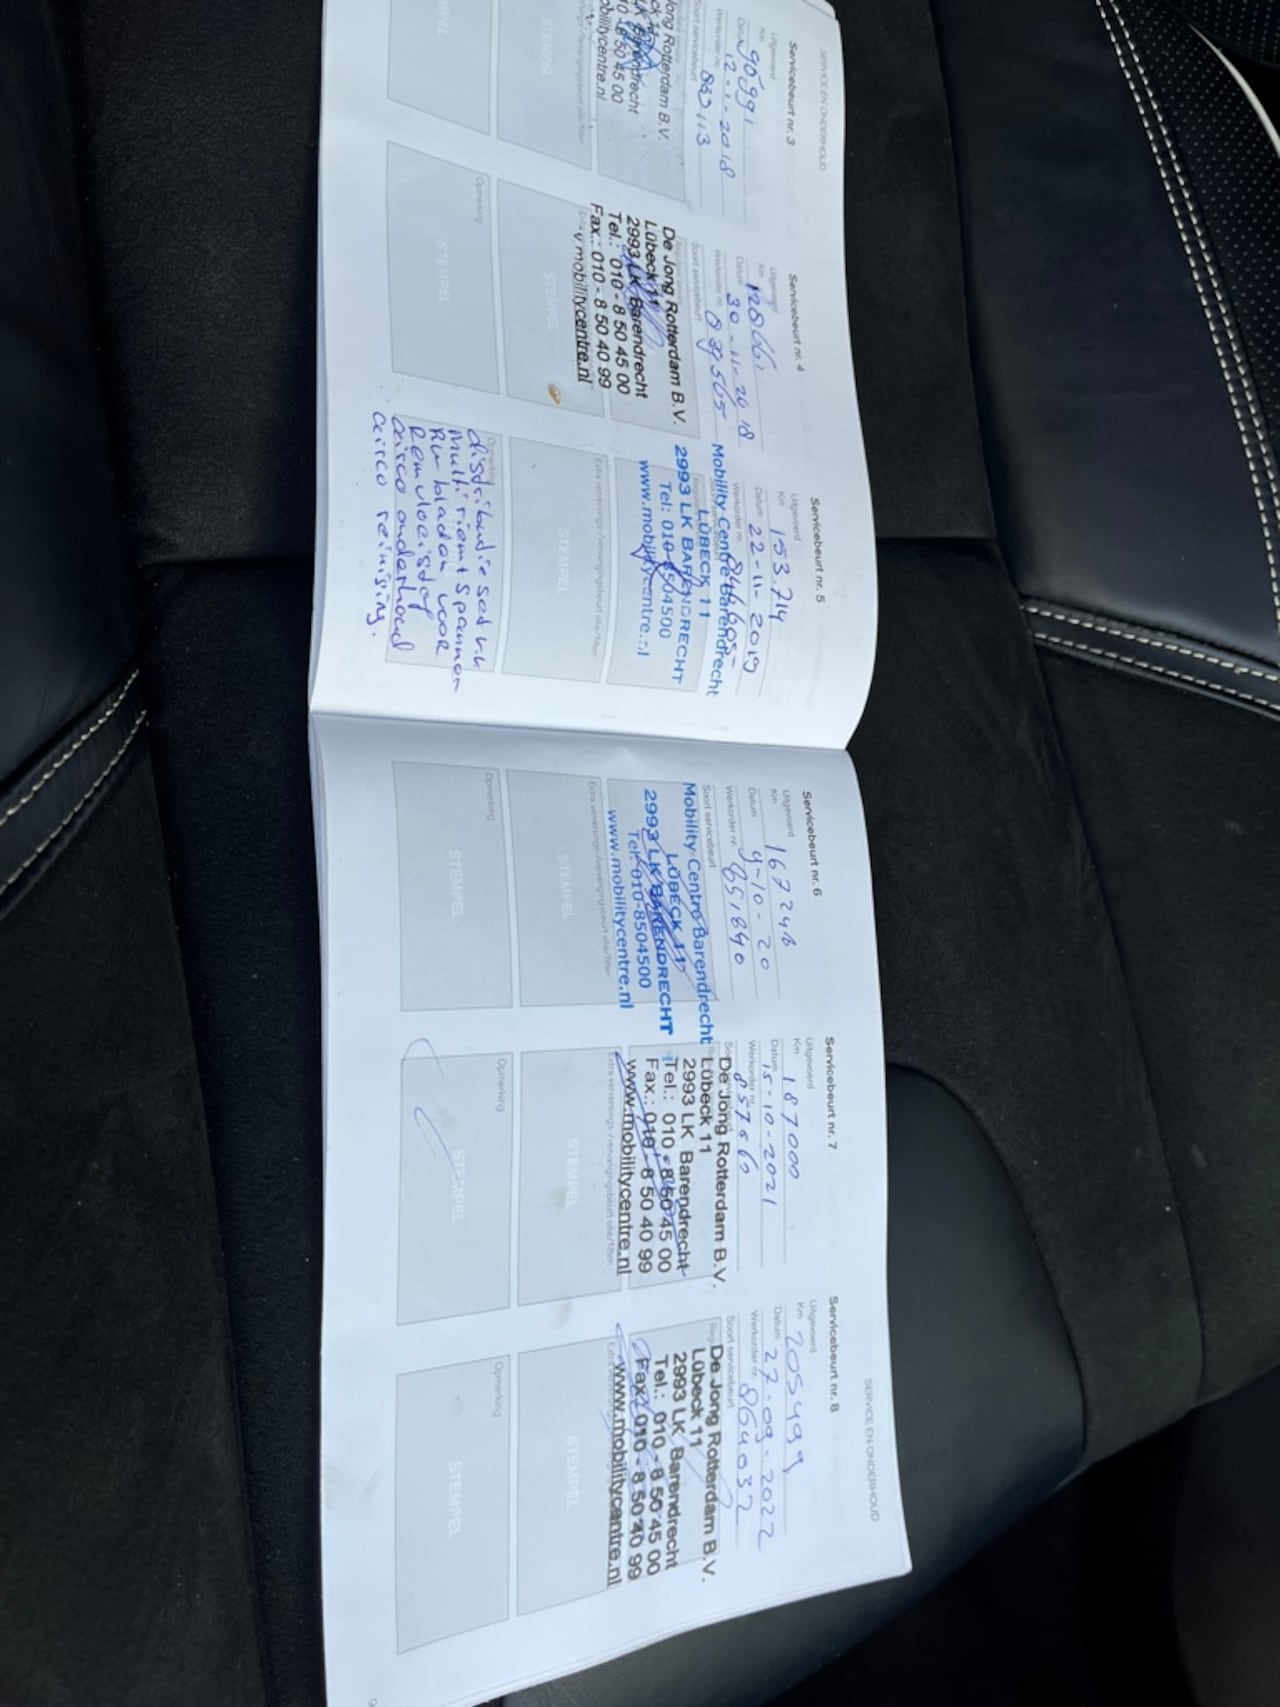 SERVICE EN ONDERHOUD
Servicebeurt nr. 3
Uitgevoerd
Km 90991
Datum 12-1-2018
Werkorder nr.
Soort servicebeurt
Jong Rotterdam B.V.
Barendrecht
8 50 45 00
obilitycentre.nl
STEMPEL
STEMPEL
Servicebeurt nr. 4
Uitgevoerd
Km
Datum 30-11-2018
Werkorder nr. 839565
Soort servicebeurt
De Jong Rotterdam B.V.
Lübeck 11
2993 LK Barendrecht
Tel.: 010 - 8 50 45 00
Fax.: 010 - 8 50 40 99
mobilitycentre.nl
STEMPEL
Opmerking
STEMPEL
Servicebeurt nr. 5
Uitgevoerd
Km 153.714
Datum 22-11-2019
Werkorder nr.
Mobility Centre Barendrecht
LÜBECK 11
2993 LK BARENDRECHT
Tel: 010-8504500
www.mobilitycentre.nl
Extra verversings-/vervangingsbeurt olie/filter:
STEMPEL
Opmerking
distributie set nr
multiriem + spanner
Ru-bladen voor
Remvloeistof
airco onderhoud
airco reiniging.
Servicebeurt nr. 6
Uitgevoerd
Km 167246
Datum 9-10-20
Werkorder nr. 851840
Soort servicebeurt
Mobility Centre Barendrecht
LÜBECK 11
2993 LK BARENDRECHT
Tel: 010-8504500
www.mobilitycentre.nl
Extra verversings-/vervangingsbeurt olie/filter:
STEMPEL
Opmerking
STEMPEL
Servicebeurt nr. 7
Uitgevoerd
Km 187000
Datum 15-10-2021
Werkorder nr. 857660
De Jong Rotterdam B.V.
Lübeck 11
2993 LK Barendrecht
Tel.: 010 - 8 50 45 00
Fax.: 010 - 8 50 40 99
www.mobilitycentre.nl
Extra verversings-/vervangingsbeurt olie/filter:
STEMPEL
Opmerking
STEMPEL
SERVICE EN ONDERHOUD
Servicebeurt nr. 8
Uitgevoerd
Km 205499
Datum 27-09-2022
Werkorder nr. 864032
Soort servicebeurt
De Jong Rotterdam B.V.
Lübeck 11
2993 LK Barendrecht
Tel.: 010 - 8 50 45 00
Fax.: 010 - 8 50 40 99
www.mobilitycentre.nl
STEMPEL
Opmerking
STEMPEL